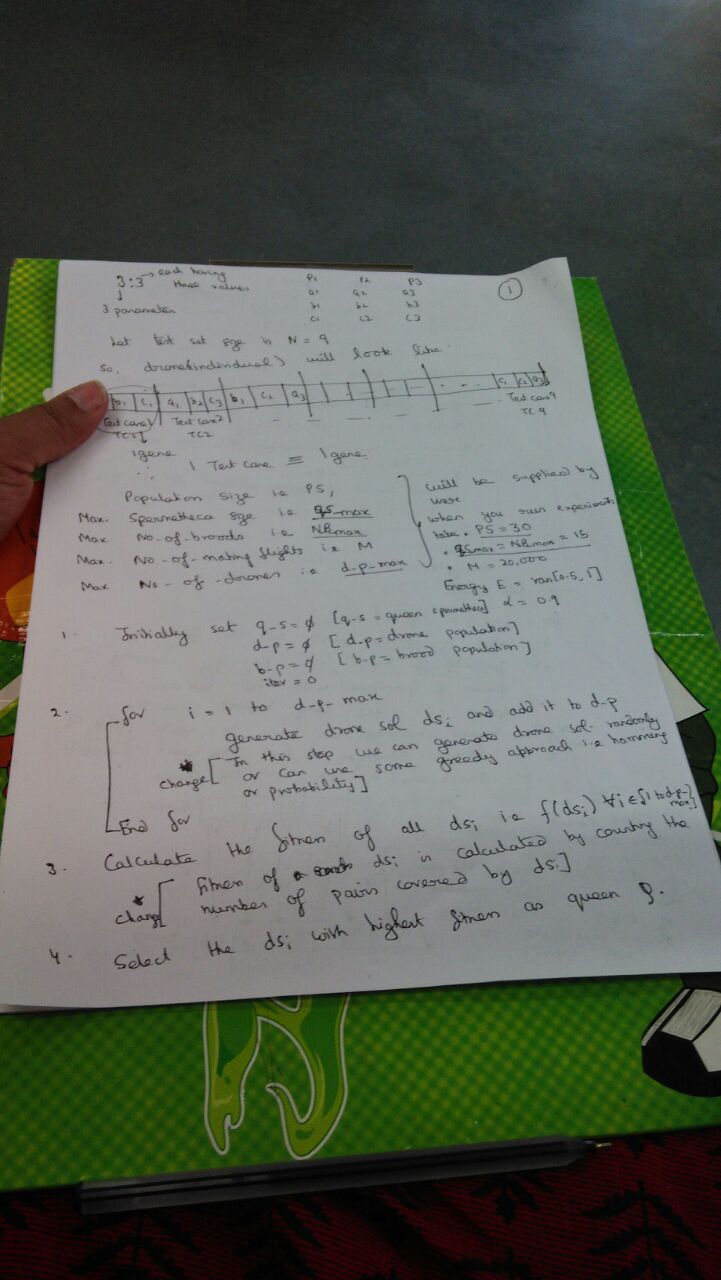 3:3 → each having three values
P1 P2 P3
↓ a1 a2 a3
3 parameter b1 b2 b3
c1 c2 c3
1
Let test set size is N = 9
So, drone(individual) will look like.
b1 c1 a1 b2 c3 b1 c2 a3 - - - c1 c2 a3
Test case1 Test case2 Test case9
TC1 TC2 TC9
1 gene
∴ 1 Test case ≡ 1 gene
Population size ie PS,
Max. Spermatheca size ie qs-max
Max No-of-broods ie NB max
Max. No-of-mating flights ie M
Max No-of-drones ie d-p-max
will be supplied by
user
when you run experiments
take • PS = 30
• qs max = NB max = 15
• M = 20,000
Energy E = ran[0.5, 1]
α = 0.9
1. Initially set q-s = ϕ [q-s = queen spermatheca]
d-p = ϕ [d-p = drone population]
b-p = ϕ [b-p = brood population]
iter = 0
2. for i = 1 to d-p-max
generate drone sol dsi and add it to d-p
* change [In this step we can generate drone sol. randomly
or can use some greedy approach i.e hamming
or probability]
End for
3. Calculate the fitness of all dsi ie f(dsi) ∀i∈{1 to d-p-max}
* change [fitness of dsi is calculated by counting the
number of pairs covered by dsi]
4. Select the dsi with highest fitness as queen Q.